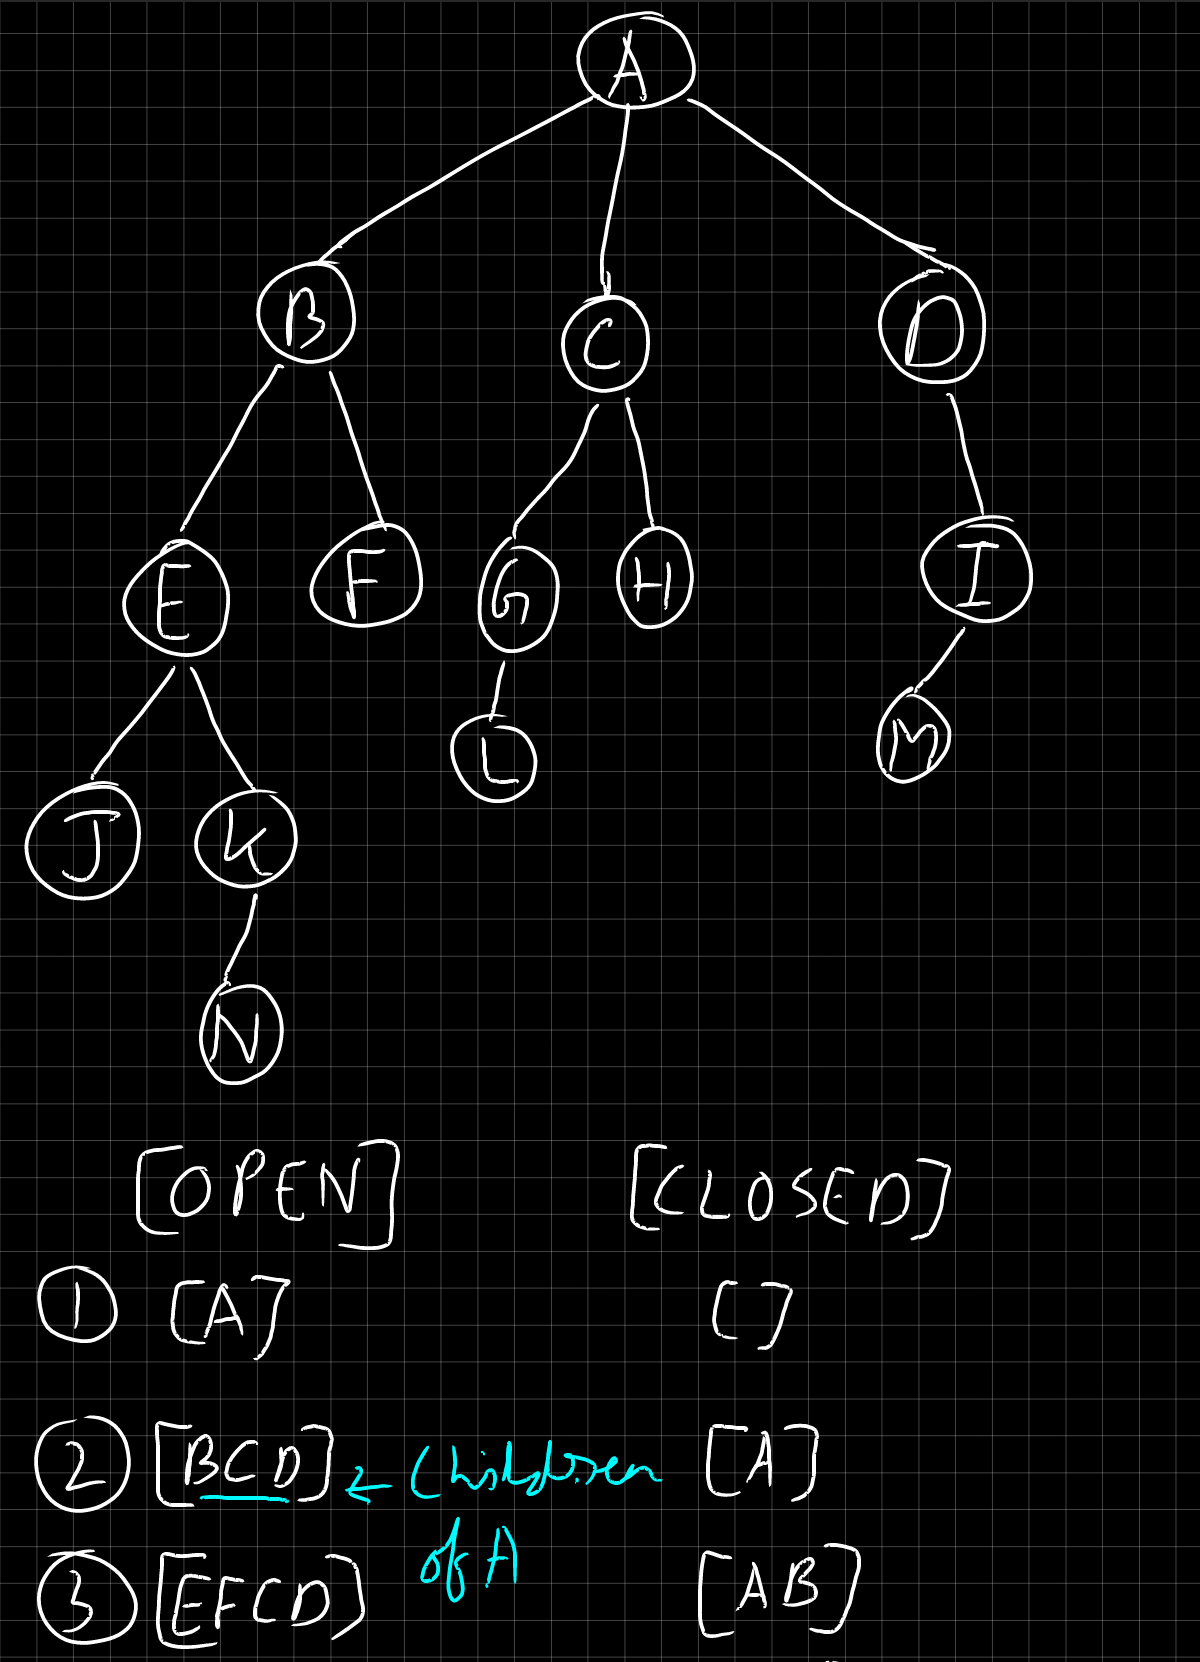 A
B C D
E F G H I
L M
J K
N
[OPEN] [CLOSED]
1 [A] []
2 [BCD] ← Children [A]
of A
3 [EFCD] [AB]